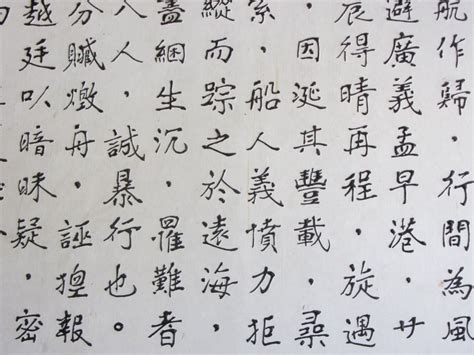 航作歸，行間為風
避廣義孟早港，廿
辰得晴再程，旋遇
，因涎其豐載，尋
，船人義憤力拒
縱而踪之於遠海，
蓋綑生沉，罹難者
八人，誠暴行也。
分贓燬舟，誣報
越廷以暗昧疑，密